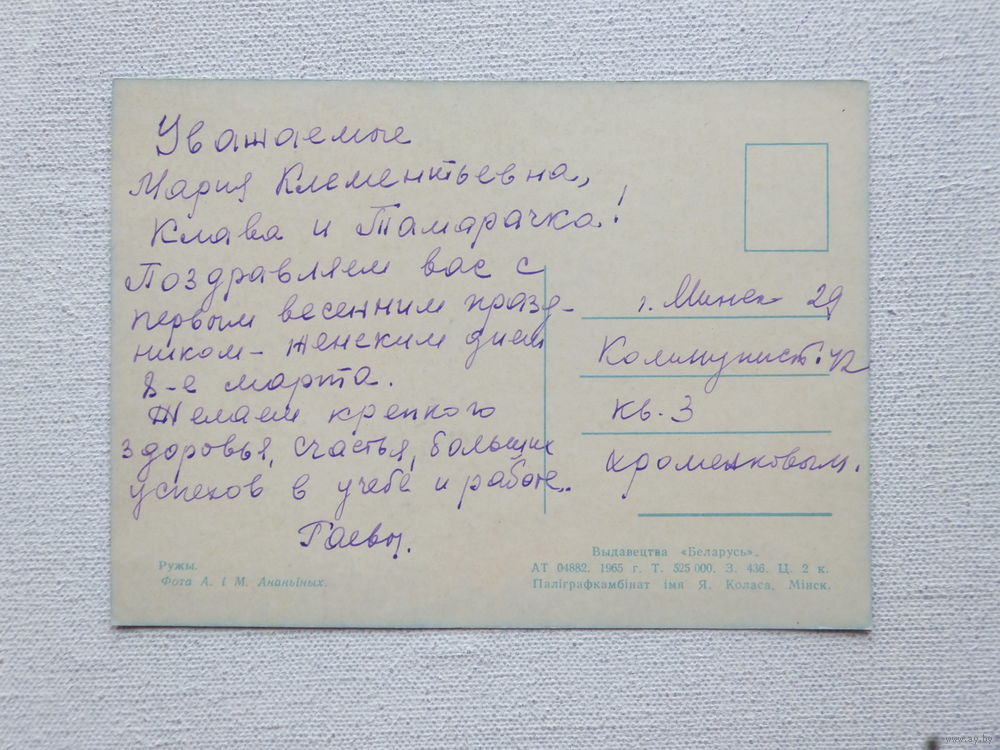 Уважаемые
Мария Клементьевна,
Клава и Тамарачка!
Поздравляем вас с
первым весенним празд-
ником - женским днем
8-е марта.
Желаем крепкого
здоровья, счастья, больших
успехов в учебе и работе.
Гаевы.
г. Минск 29
Коммунист. 42
кв. 3
Хроменковым.
Ружы.
Фота А. і М. Ананьіных.
Выдавецтва «Беларусь».
АТ 04882. 1965 г. Т. 525 000. З. 436. Ц. 2 к.
Паліграфкамбінат імя Я. Коласа, Мінск.
www.ay.by